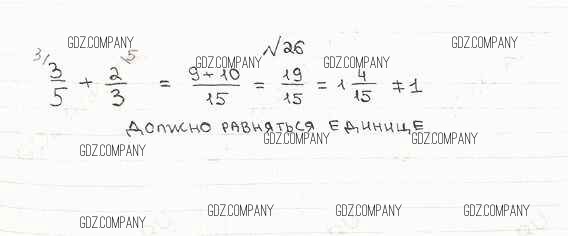 GDZ.COMPANY GDZ.COMPANY
№26
GDZ.COMPANY GDZ.COMPANY
3\ 3/5 + 2/3 \5 = 9+10/15 = 19/15 = 1 4/15 ≠ 1
ДОЛЖНО РАВНЯТЬСЯ ЕДИНИЦЕ
GDZ.COMPANY GDZ.COMPANY GDZ.COMPANY
GDZ.COMPANY GDZ.COMPANY GDZ.COMPANY GDZ.COMPANY